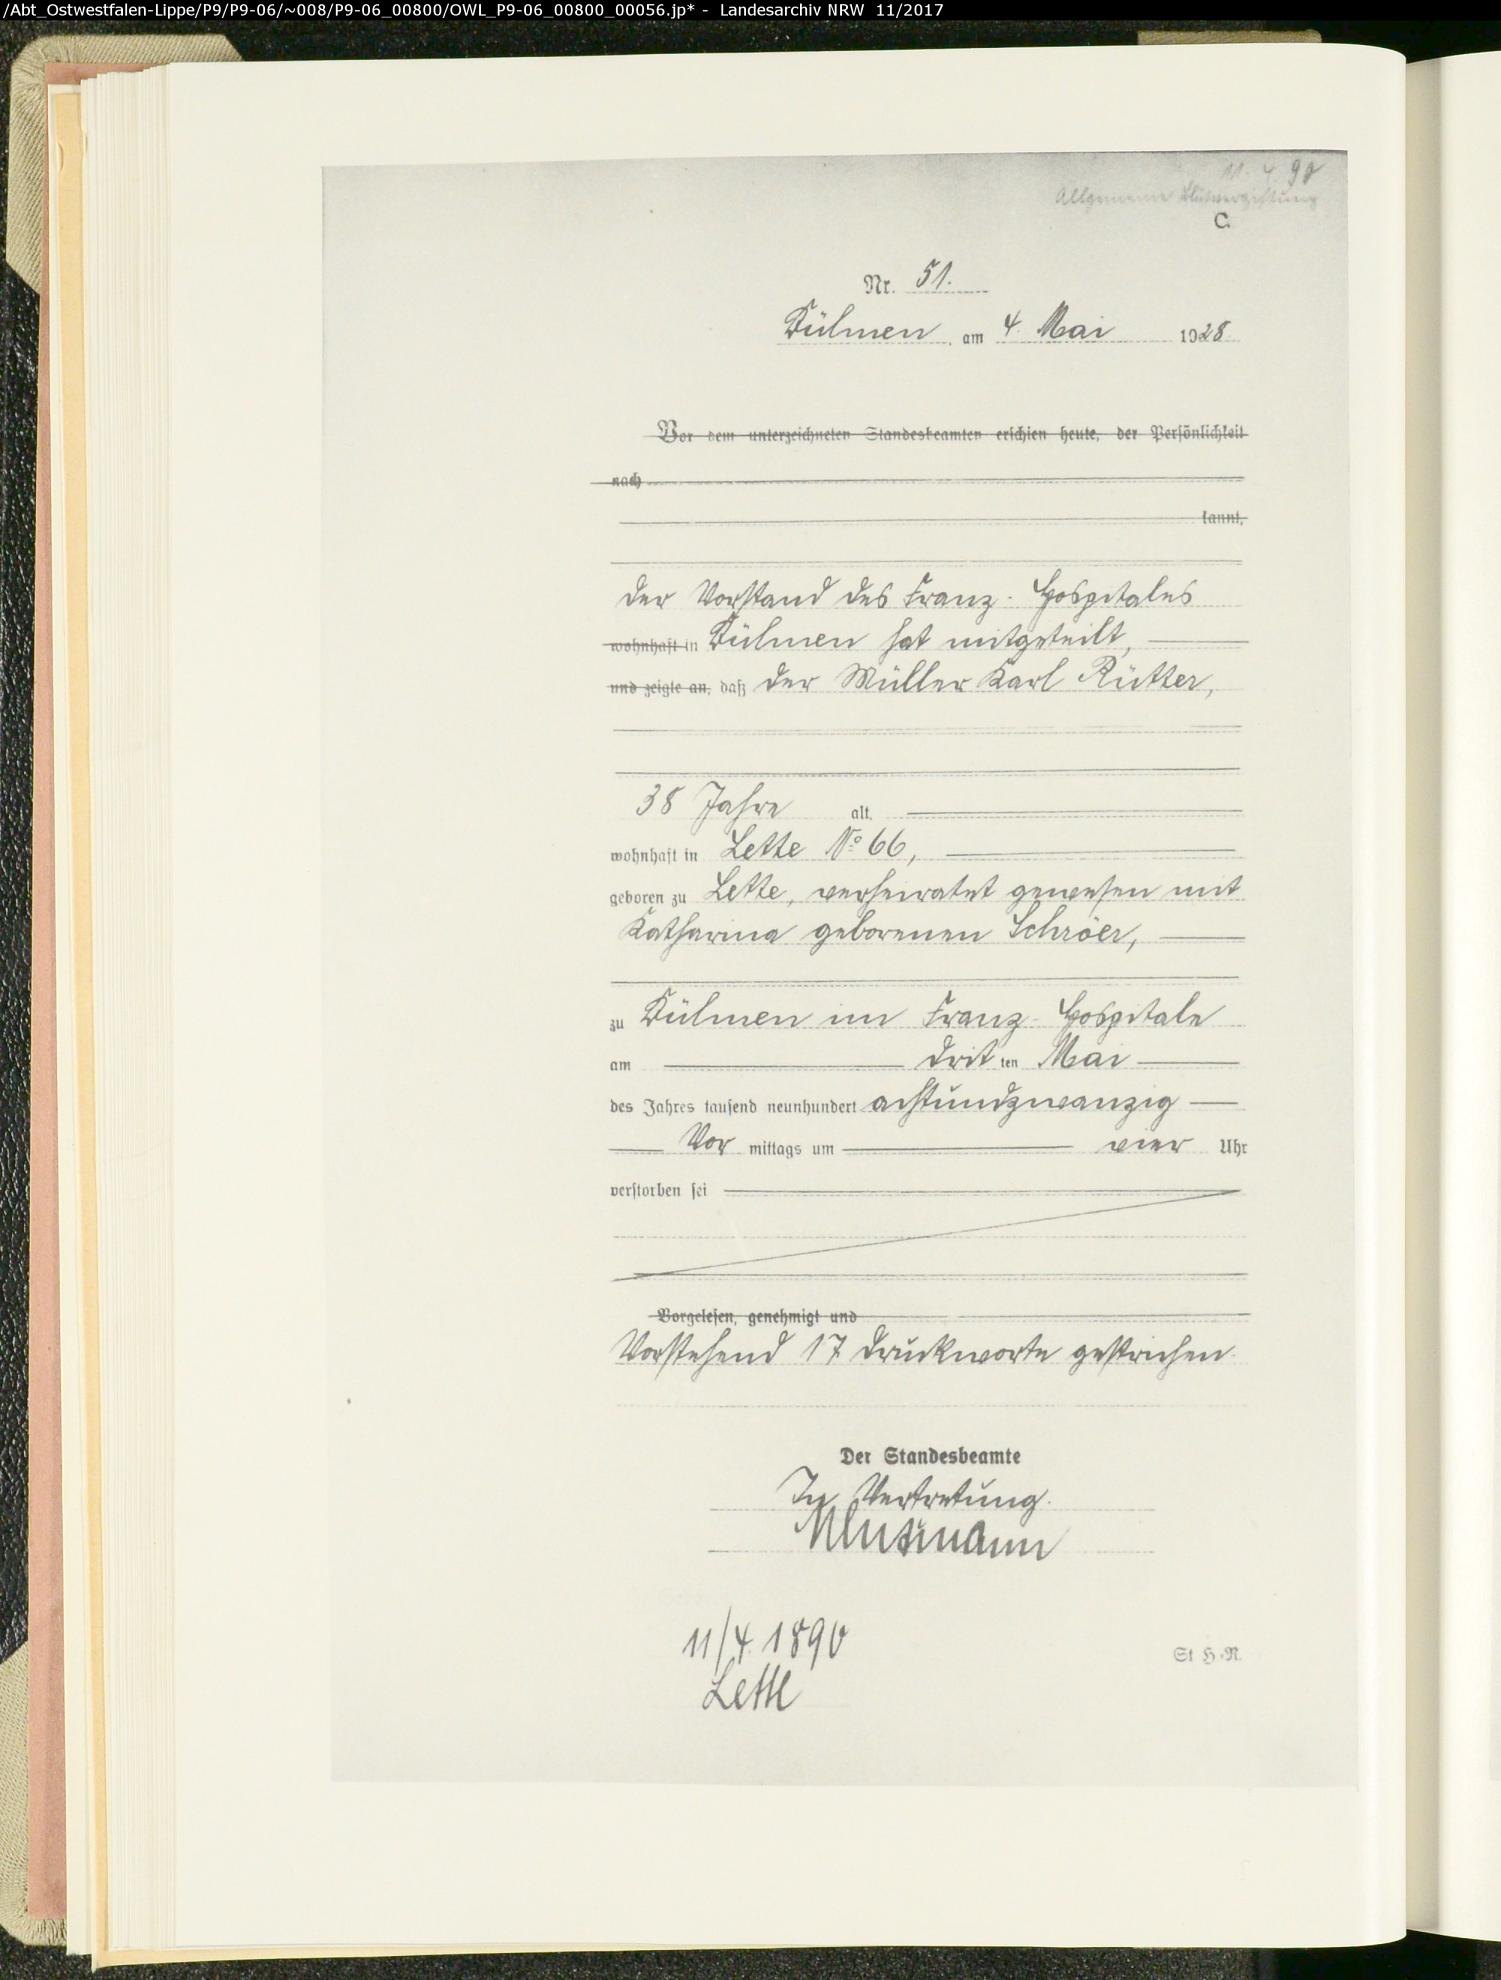 /Abt_Ostwestfalen-Lippe/P9/P9-06/~008/P9-06_00800/OWL_P9-06_00800_00056.jp* - Landesarchiv NRW 11/2017
11. 4. 90
Allgemeine Blutvergiftung
C.
Nr. 51.
Dülmen, am 4. Mai 1928
Vor dem unterzeichneten Standesbeamten erschien heute, der Persönlichkeit
nach
kannt,
der Vorstand des Franz-Hospitales
wohnhaft in Dülmen hat mitgeteilt,
und zeigte an, daß der Müller Karl Rütter,
38 Jahre alt,
wohnhaft in Lette No 66,
geboren zu Lette, verheiratet gewesen mit
Katharina geborenen Schröer,
zu Dülmen im Franz-Hospitale
am dritten Mai
des Jahres tausend neunhundert achtundzwanzig
Vormittags um vier Uhr
verstorben sei
Vorgelesen, genehmigt und
Vorstehend 17 Druckworte gestrichen.
Der Standesbeamte
In Vertretung.
11/4. 1890
Lette
St H.R.